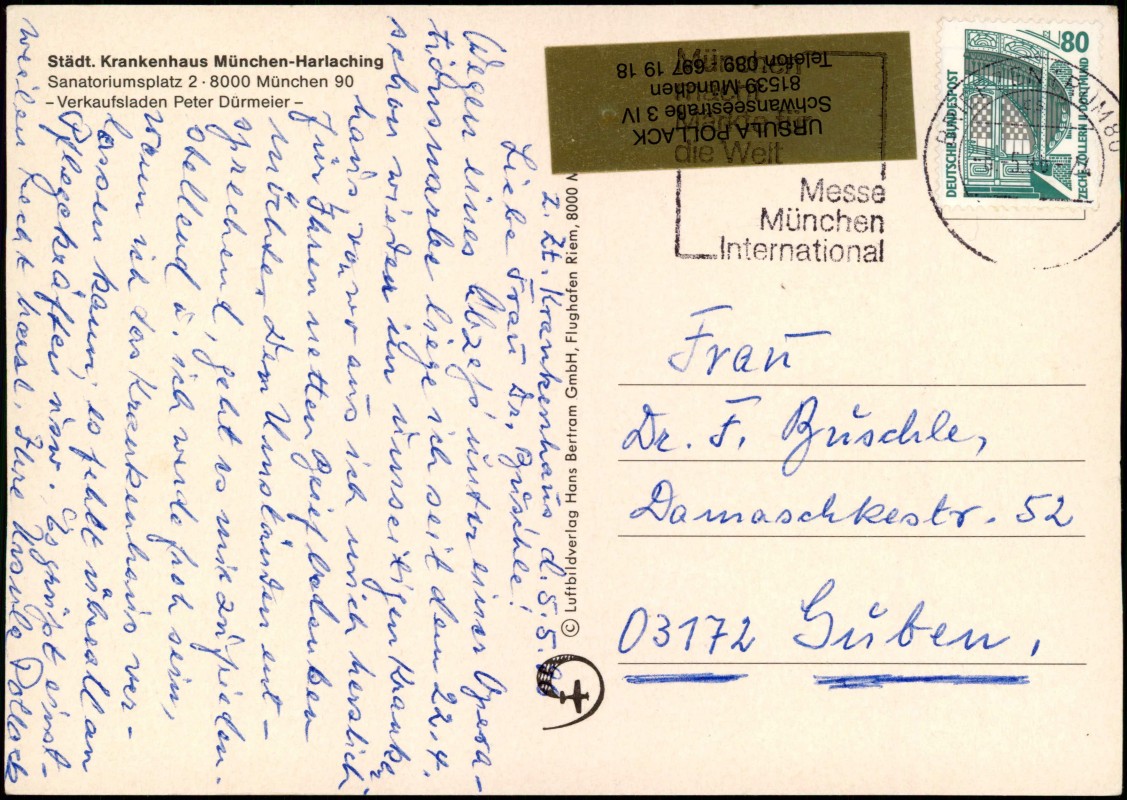 Städt. Krankenhaus München-Harlaching
Sanatoriumsplatz 2 · 8000 München 90
– Verkaufsladen Peter Dürmeier –
z. Zt. Krankenhaus d. 5.5.
Liebe Frau Dr. Büschle!
Wegen eines Abzeß' unter einer Opera-
tionsnarbe liege ich seit dem 22.4.
schon wieder im hiesigen Kranken-
haus, von wo aus ich mich herzlich
für Ihren netten Brief bedanken
möchte. Den Umständen ent-
sprechend, geht es mir zufrieden-
stellend u. ich werde froh sein,
wenn ich das Krankenhaus ver-
lassen kann; es fehlt überall an
Pflegekräften usw. Es grüßt einst-
weilen recht herzl. Ihre Ursula Pollack
© Luftbildverlag Hans Bertram GmbH, Flughafen Riem, 8000 M
URSULA POLLACK
Schwanseestraße 3 IV
81539 München
Telefon 089 / 697 19 18
München
Märkte für
die Welt
Messe
München
International
80
DEUTSCHE BUNDESPOST
ZECHE ZOLLERN II DORTMUND
Frau
Dr. F. Büschle,
Damaschkestr. 52
03172 Guben,